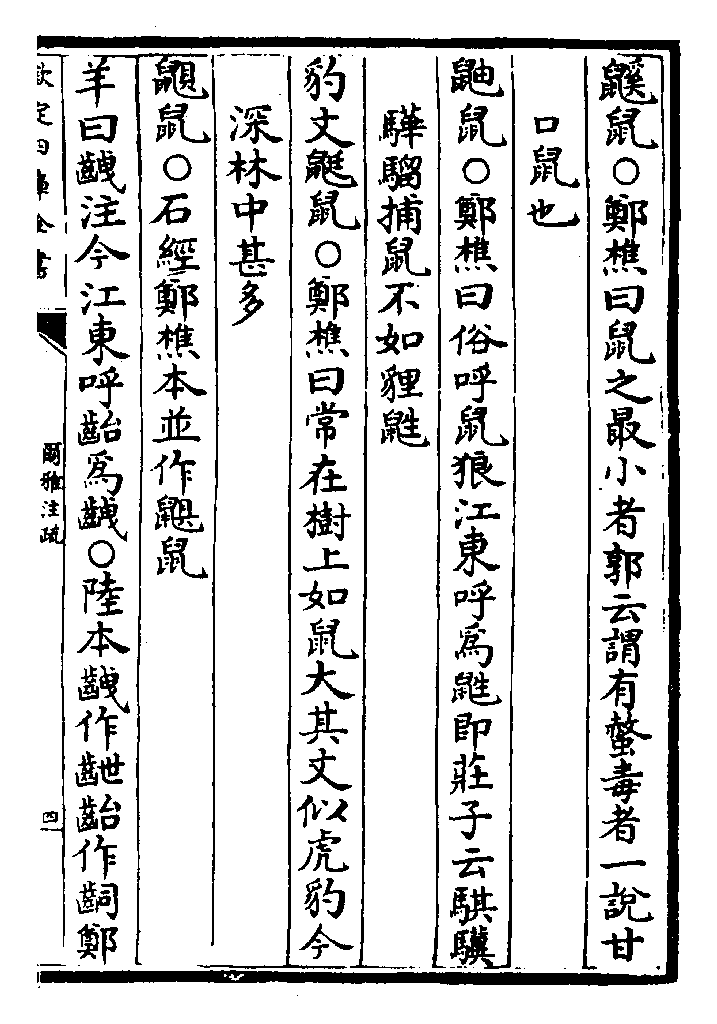 鼷鼠○鄭樵曰鼠之最小者郭云謂有螫毒者一說甘
口鼠也
鼬鼠○鄭樵曰俗呼鼠狼江東呼爲鼪即莊子云騏驥
驊騮捕鼠不如貍鼪
豹文鼮鼠○鄭樵曰常在樹上如鼠大其文似虎豹今
深林中甚多
鼰鼠○石經鄭樵本並作鼳鼠
羊曰齥注今江東呼齝爲齥○陸本齥作齛齝作齠鄭
欽定四庫全書
爾雅注疏
四